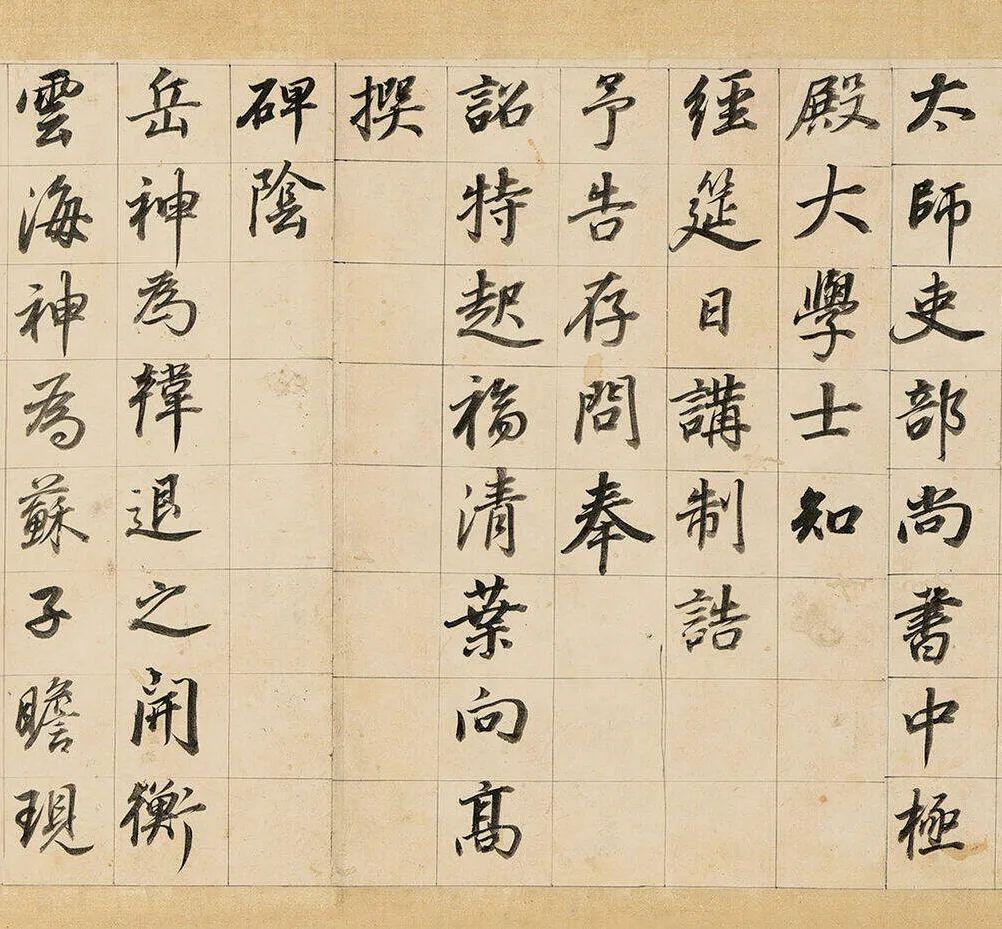 太師吏部尚書中極
殿大學士知
經筵日講制誥
予告存問奉
詔特起福清葉向高
撰
碑陰
岳神為韓退之開衡
雲海神為蘇子瞻現